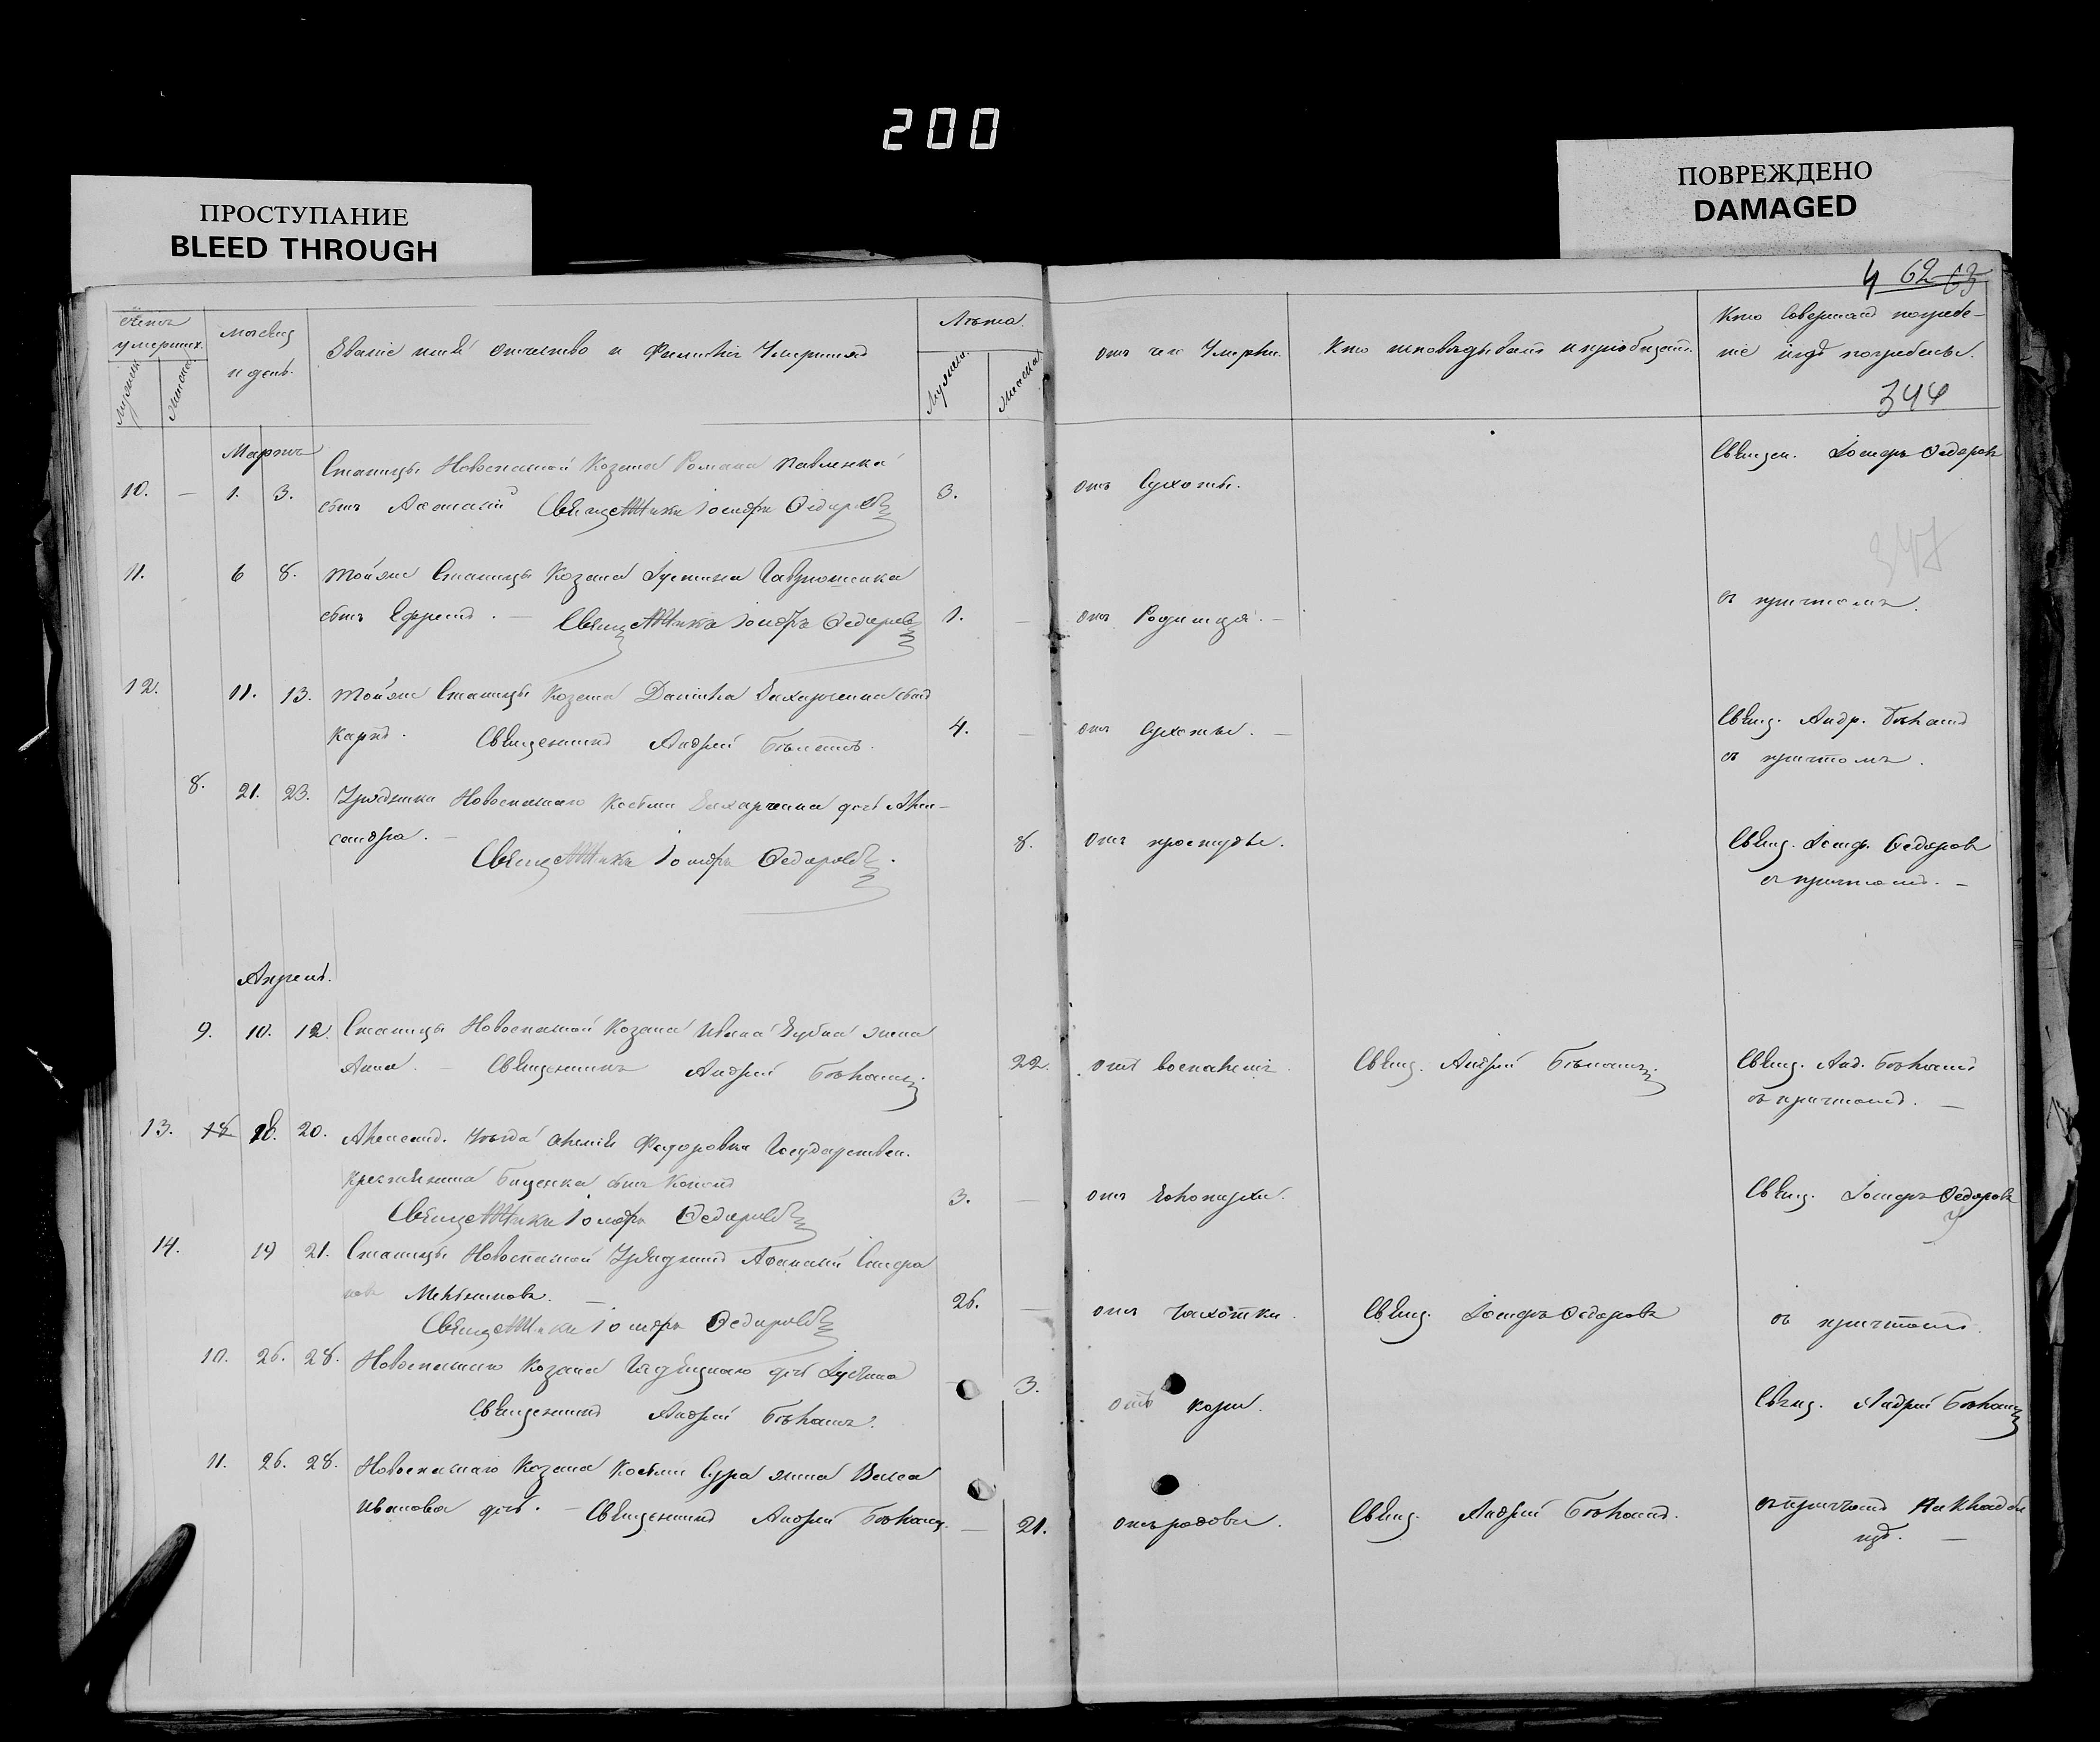 200
ПРОСТУПАНИЕ
BLEED THROUGH
ПОВРЕЖДЕНО
DAMAGED
4 62 63
Счетъ умершихъ.
Мужеска
Женска
Мѣсяцъ и день.
Званіе имя отчество и Фамилія Умершихъ
Лѣта.
Мужеска.
Женска.
отъ чего Умерли.
Кто исповѣдывалъ и пріобщалъ.
Кто Совершалъ погребе-
ніе и гдѣ погребены.
344
Мартъ
10. — 1. 3. Станицы Новоспаской Козака Романа Павленка
сынъ Афанасій Священникъ Іосифъ Ѳедоровъ
3. отъ Сухоты.
Священ. Іосифъ Ѳедоровъ
347
11. 6 8. Той же Станицы Козака Іустина Гаврюшенка
сынъ Ефремъ. — Священникъ Іосифъ Ѳедоровъ
1. — отъ Родимца. —
съ причтомъ.
12. 11. 13. Той же Станицы Козака Даніила Захарченка сынъ
Карпъ. Священникъ Андрей
4. — отъ Сухоты. —
Свящ. Андр.
съ причтомъ.
8. 21. 23. Урядника Новоспаскаго Захарченка дочь Алек-
сандра. —
Священникъ Іосифъ Ѳедоровъ.
8. отъ простуды.
Свящ. Іосиф. Ѳедоровъ
съ причтомъ. —
Апрель.
9. 10. 12. Станицы Новоспаской Козака Ивана Зубка жена
Анна. — Священникъ Андрей
22. отъ воспаленія.
Свящ. Андрей
Свящ. Анд.
съ причтомъ. —
13. 18. 20. Александ. Уѣзда Федоровки Государствен.
крестьянина Биценка сынъ Кононъ
Священникъ Іосифъ Ѳедоровъ
3. — отъ
Свящ. Іосифъ Ѳедоровъ
14. 19 21. Станицы Новоспаской Урядникъ Афанасій Спиридо
новъ Мельниковъ. —
Священникъ Іосифъ Ѳедоровъ
26. — отъ Чахотки.
Свящ. Іосифъ Ѳедоровъ
съ причтомъ.
10. 26. 28. Новоспаскаго Козака дочь
Священникъ Андрей
3. отъ кори.
Свящ. Андрей
11. 26. 28. Новоспаскаго Козака Сура жена Васса
Иванова дочь. — Священникъ Андрей
— 21. отъ родовъ.
Свящ. Андрей
съ причтомъ на кладби
щѣ. —